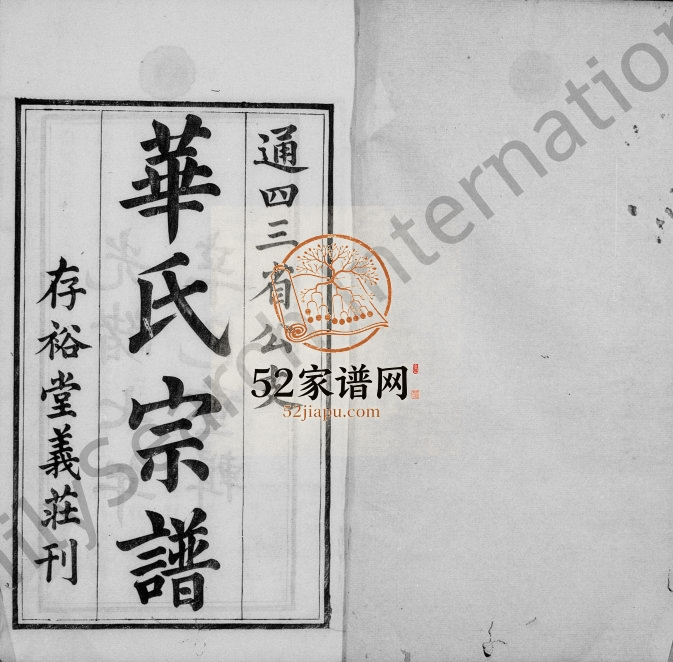 通四三省公支
華氏宗譜
存裕堂義莊刊
52家谱网
52jiapu.com
ilySearch International